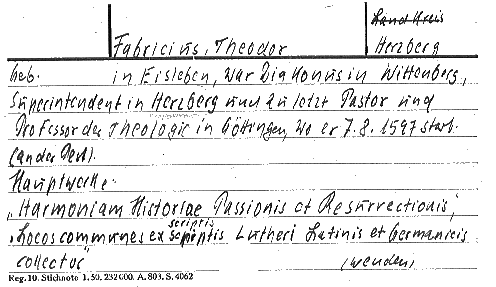 Land Kreis
Fabricius, Theodor Herzberg
geb. in Eisleben, war Diakonus in Wittenberg,
Superintendent in Herzberg und zuletzt Pastor und
Professor der Theologie in Göttingen, wo er 7.8.1597 starb.
(an der Pest).
Hauptwerke:
"Harmoniam Historiae Passionis et Resurrectionis",
scriptis
"Locos communes ex Lutheri Latinis et Germanicis
collectos"
(wenden)
Reg. 10. Stichnote 1. 50. 232000. A. 803. S. 4062